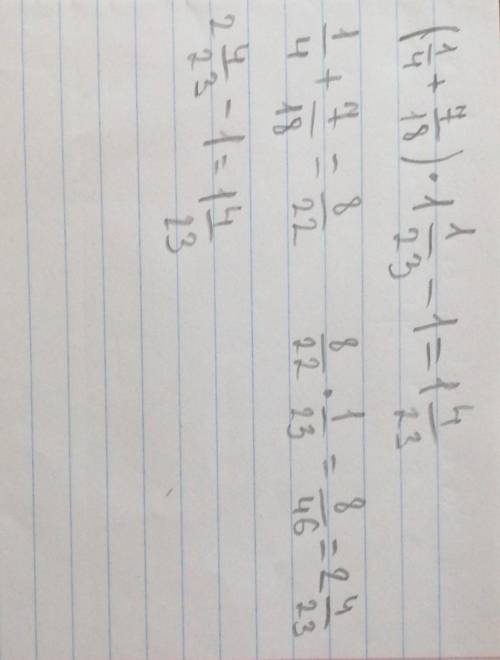 (1/4 + 7/18) · 1 1/23 - 1 = 1 4/23
1/4 + 7/18 = 8/22    8/22 · 1/23 = 8/46 = 2 4/23
2 4/23 - 1 = 1 4/23